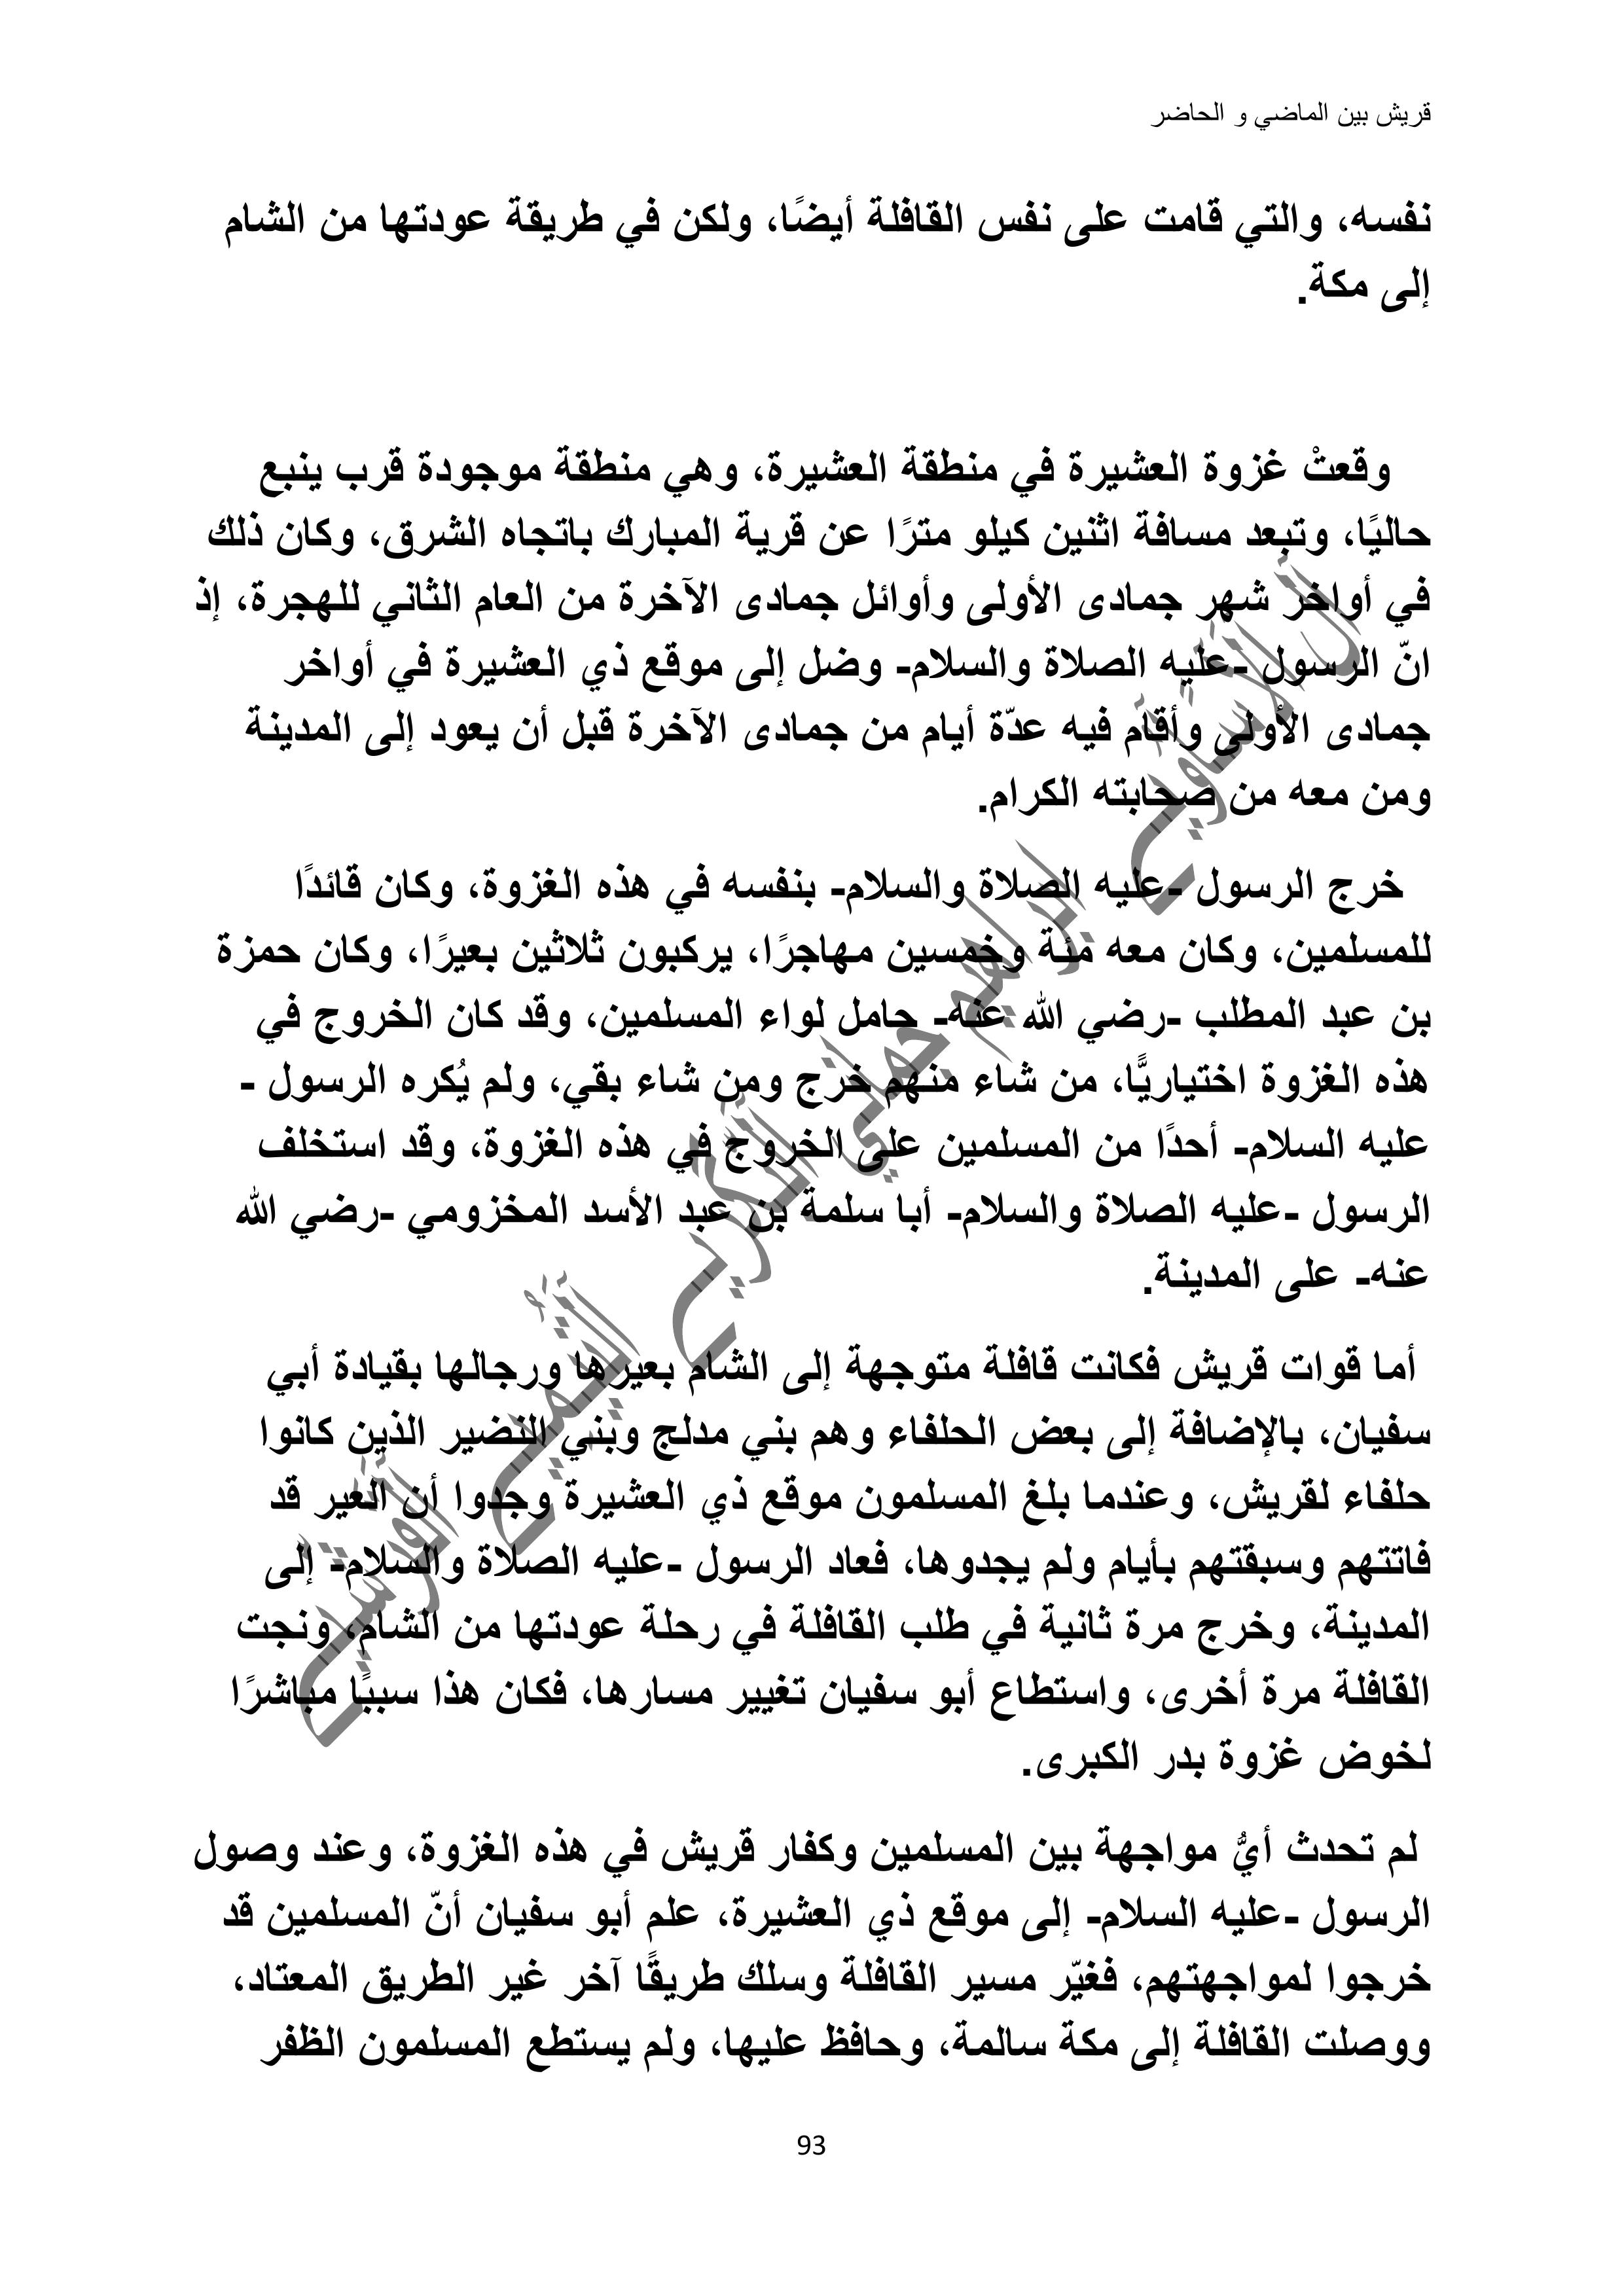 قريش بين الماضي و الحاضر
نفسه، والتي قامت على نفس القافلة أيضًا، ولكن في طريقة عودتها من الشام
إلى مكة.
وقعتْ غزوة العشيرة في منطقة العشيرة، وهي منطقة موجودة قرب ينبع
حاليًا، وتبعد مسافة اثنين كيلو مترًا عن قرية المبارك باتجاه الشرق، وكان ذلك
في أواخر شهر جمادى الأولى وأوائل جمادى الآخرة من العام الثاني للهجرة، إذ
انّ الرسول -عليه الصلاة والسلام- وضل إلى موقع ذي العشيرة في أواخر
جمادى الأولى وأقام فيه عدّة أيام من جمادى الآخرة قبل أن يعود إلى المدينة
ومن معه من صحابته الكرام.
خرج الرسول -عليه الصلاة والسلام- بنفسه في هذه الغزوة، وكان قائدًا
للمسلمين، وكان معه مئة وخمسين مهاجرًا، يركبون ثلاثين بعيرًا، وكان حمزة
بن عبد المطلب -رضي الله عنه- حامل لواء المسلمين، وقد كان الخروج في
هذه الغزوة اختياريًّا، من شاء منهم خرج ومن شاء بقي، ولم يُكره الرسول -
عليه السلام- أحدًا من المسلمين على الخروج في هذه الغزوة، وقد استخلف
الرسول -عليه الصلاة والسلام- أبا سلمة بن عبد الأسد المخزومي -رضي الله
عنه- على المدينة.
أما قوات قريش فكانت قافلة متوجهة إلى الشام بعيرها ورجالها بقيادة أبي
سفيان، بالإضافة إلى بعض الحلفاء وهم بني مدلج وبني النضير الذين كانوا
حلفاء لقريش، وعندما بلغ المسلمون موقع ذي العشيرة وجدوا أن العير قد
فاتتهم وسبقتهم بأيام ولم يجدوها، فعاد الرسول -عليه الصلاة والسلام- إلى
المدينة، وخرج مرة ثانية في طلب القافلة في رحلة عودتها من الشام، ونجت
القافلة مرة أخرى، واستطاع أبو سفيان تغيير مسارها، فكان هذا سببًا مباشرًا
لخوض غزوة بدر الكبرى.
لم تحدث أيُّ مواجهة بين المسلمين وكفار قريش في هذه الغزوة، وعند وصول
الرسول -عليه السلام- إلى موقع ذي العشيرة، علم أبو سفيان أنّ المسلمين قد
خرجوا لمواجهتهم، فغيّر مسير القافلة وسلك طريقًا آخر غير الطريق المعتاد،
ووصلت القافلة إلى مكة سالمة، وحافظ عليها، ولم يستطع المسلمون الظفر
93